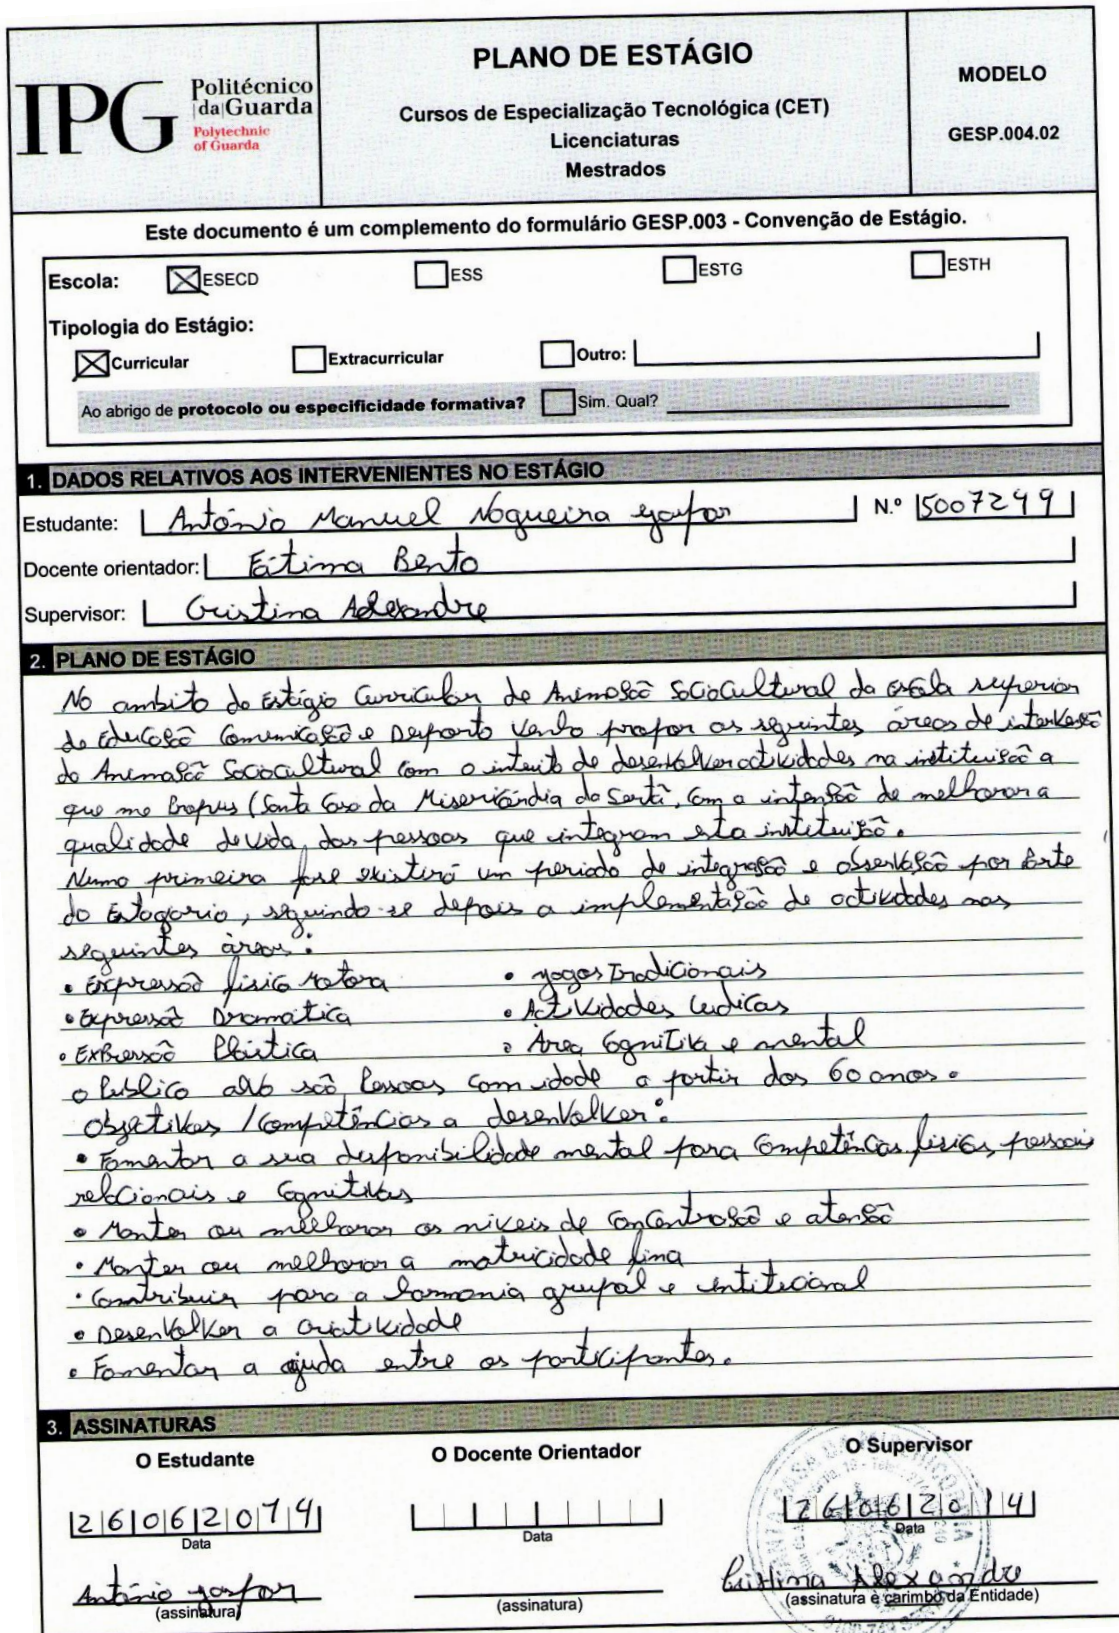 IPG
Politécnico
|da|Guarda
Polytechnic
of Guarda
PLANO DE ESTÁGIO
Cursos de Especialização Tecnológica (CET)
Licenciaturas
Mestrados
MODELO
GESP.004.02
Este documento é um complemento do formulário GESP.003 - Convenção de Estágio.
Escola: ESECD ESS ESTG ESTH
Tipologia do Estágio:
Curricular Extracurricular Outro:
Ao abrigo de protocolo ou especificidade formativa? Sim. Qual?
1. DADOS RELATIVOS AOS INTERVENIENTES NO ESTÁGIO
Estudante: António Manuel Nogueira Gaspar N.º 5007299
Docente orientador: Fátima Bento
Supervisor: Cristina Alexandre
2. PLANO DE ESTÁGIO
No ambito do Estágio Curricular, de Animação Sociocultural da Escola superior
de Educação Comunicação e Desporto venho propor as seguintes áreas de intervenção
do Animação Sociocultural com o intuito de desenvolver actividades na instituição a
que me Propus (Santa Casa da Misericórdia da Sertã, com a intenção de melhorar a
qualidade de vida, das pessoas que integram esta instituição.
Numa primeira fase existirá um periodo de integração e observação por parte
do Estagiario, seguindo-se depois a implementação de actividades nas
seguintes áreas:
• Expressão fisico Motora • Jogos Tradicionais
• Expressão Dramática • Actividades Ludicas
• Expressão Plástica • Área Cognitiva e mental
O Publico alvo são Pessoas com idade a partir dos 60 anos.
Objectivos / Competências a desenvolver:
• Fomentar a sua disponibilidade mental para Competências fisicas, pessoais
relacionais e Cognitivas
• Manter ou melhorar os niveis de Concentração e atenção
• Manter ou melhorar a motricidade fina
• Contribuir para a harmonia grupal e
• Desenvolver a criatividade
• Fomentar a ajuda entre os participantes.
3. ASSINATURAS
O Estudante O Docente Orientador O Supervisor
26062014 26062014
Data Data Data
António Gaspar Cristina Alexandre
(assinatura) (assinatura) (assinatura e carimbo da Entidade)